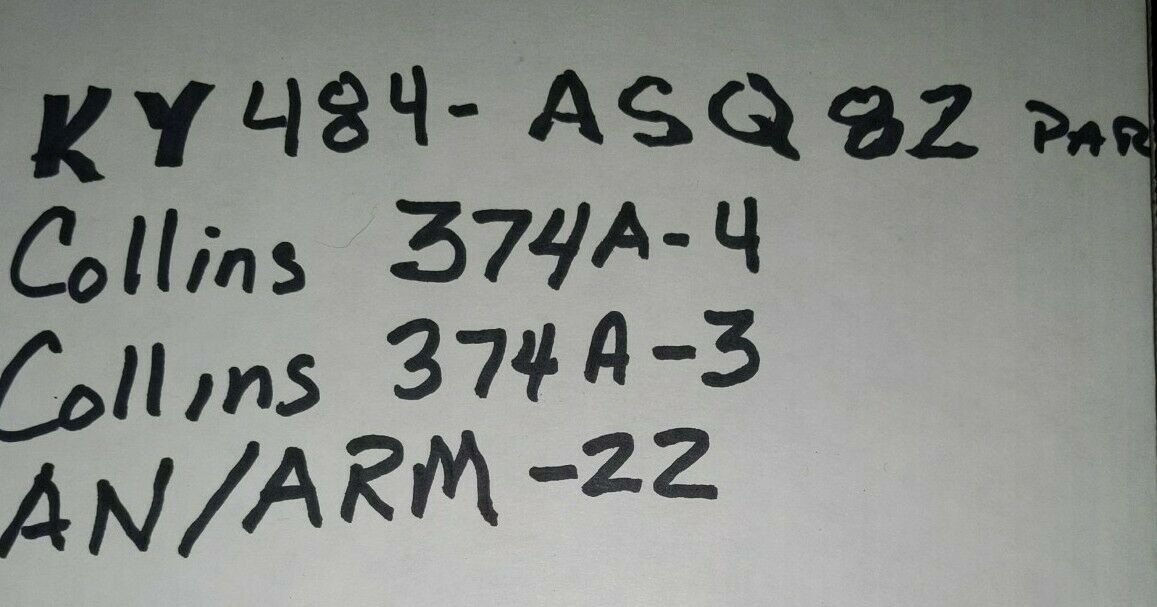 KY 484- ASQ 82 PAR
Collins 374A-4
Collins 374A-3
AN/ARM-22